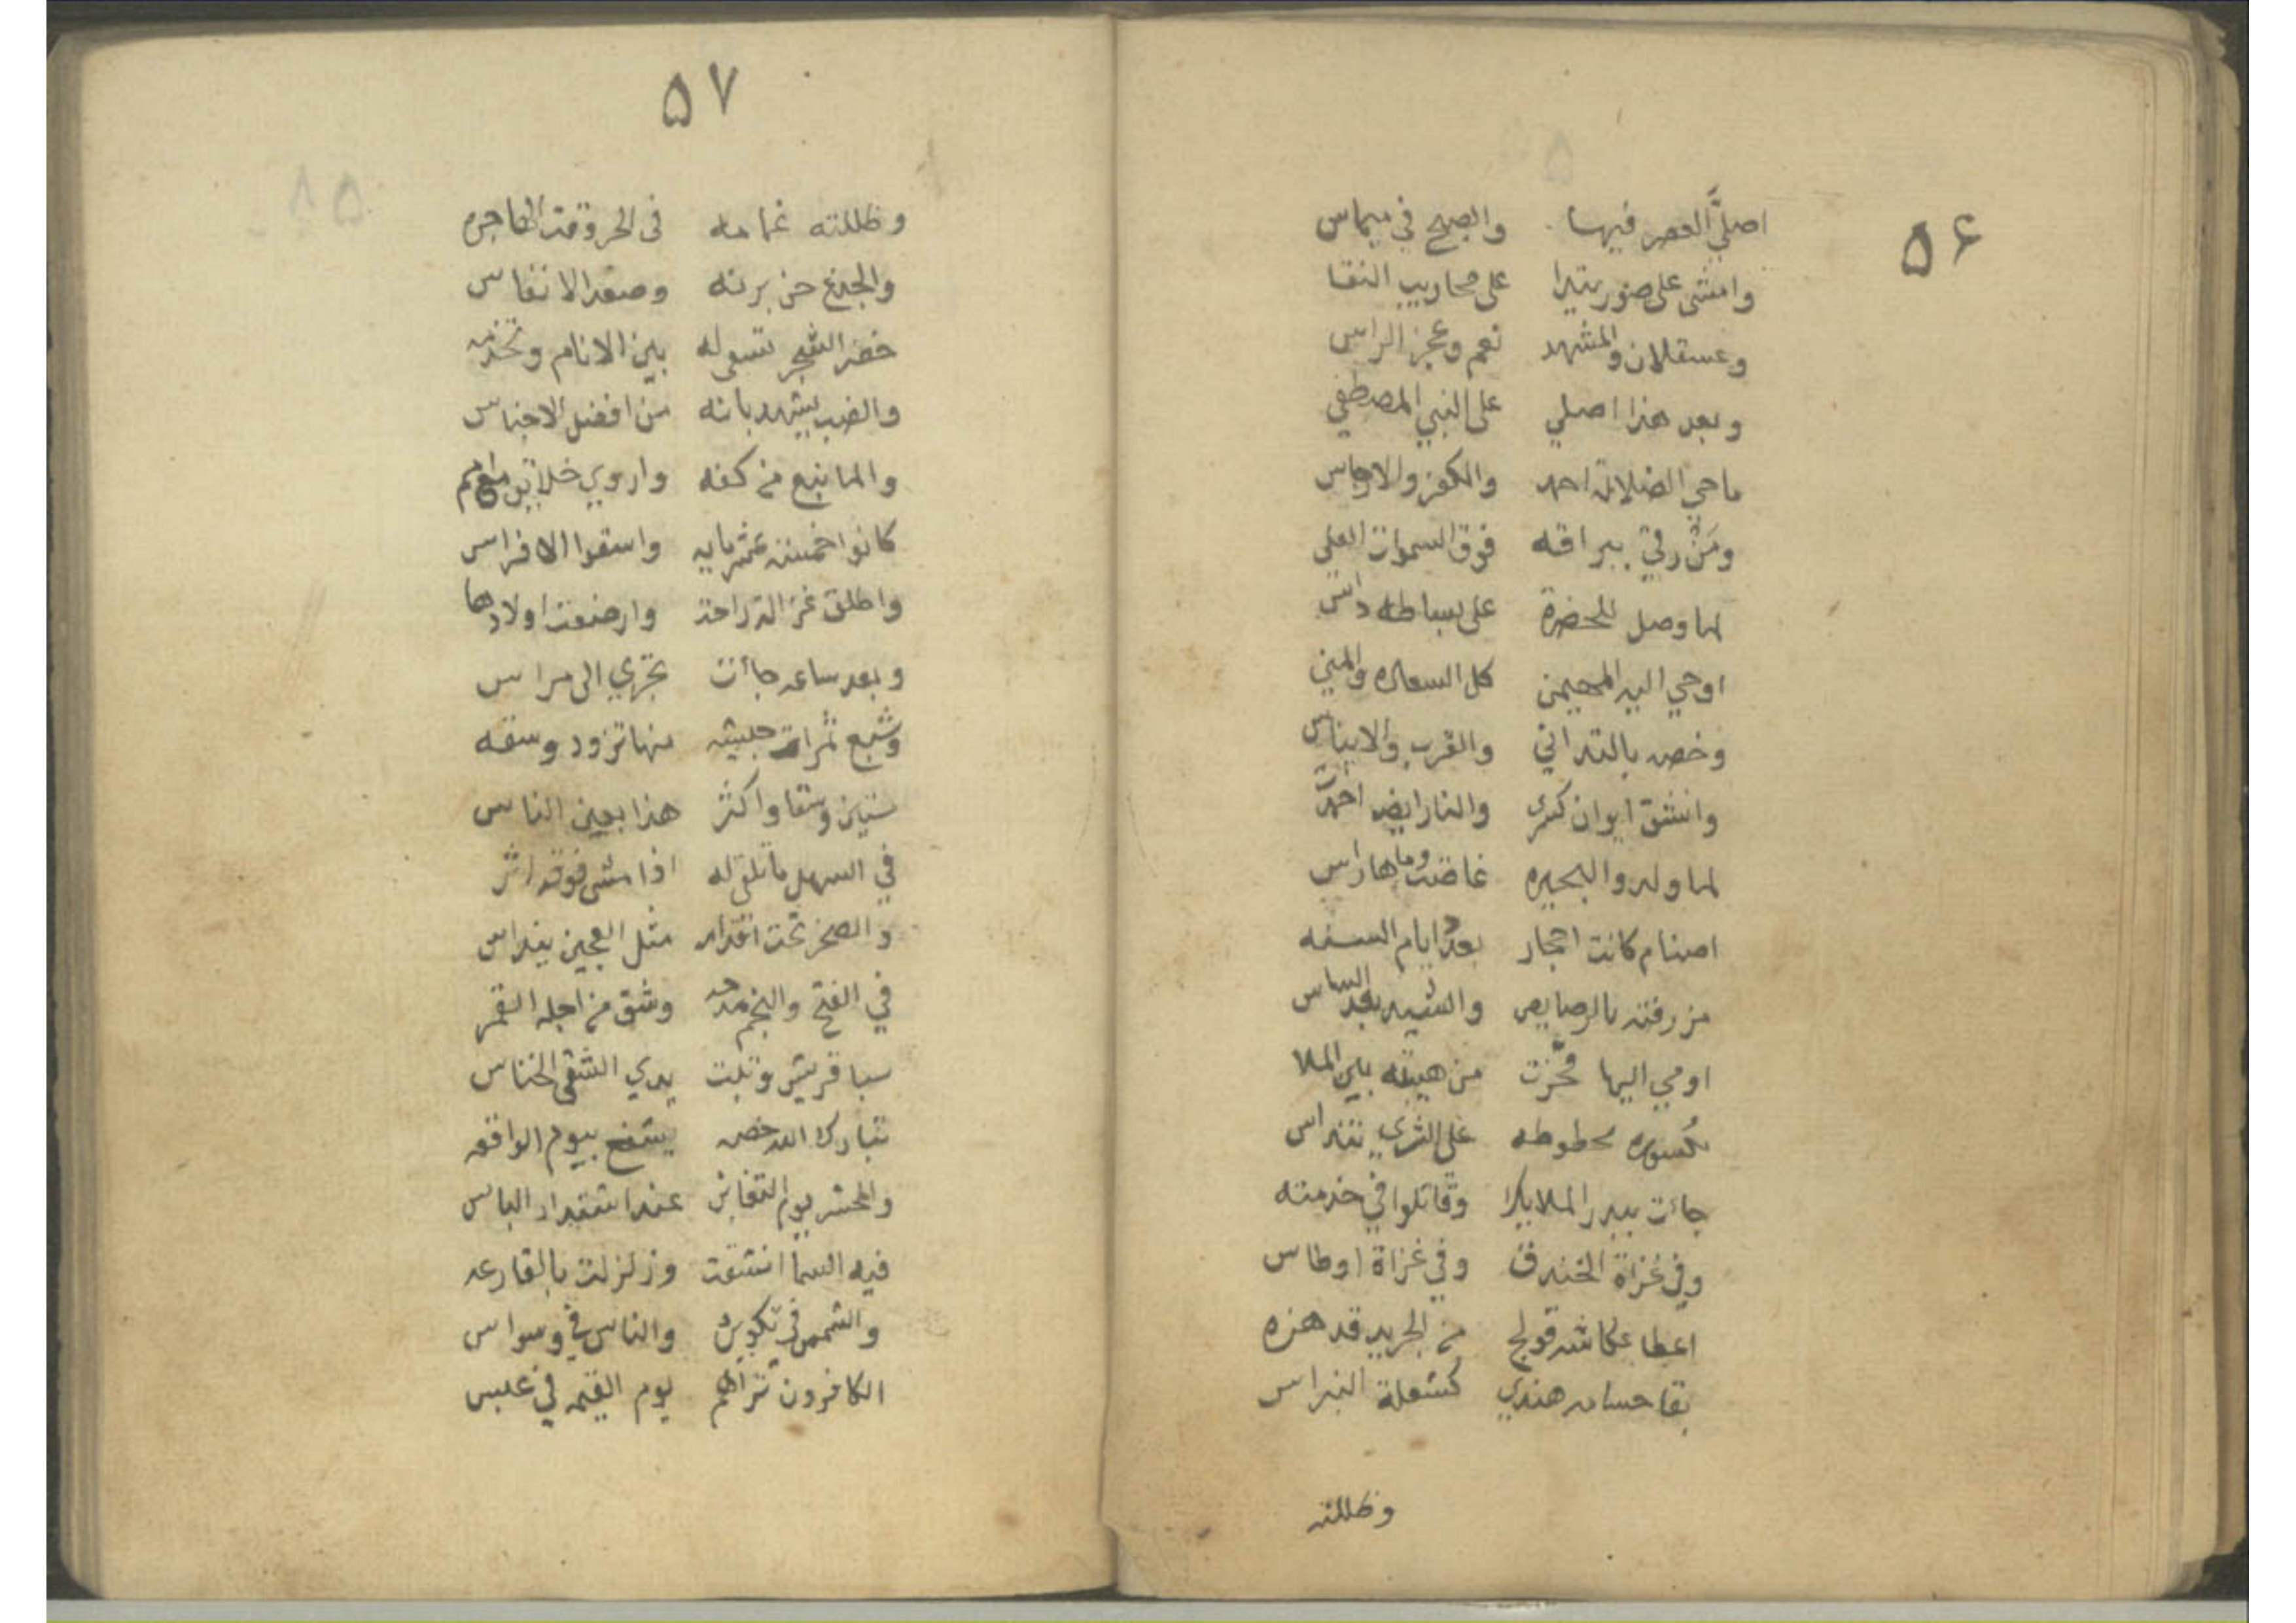 ٥٦
اصلي العصر فيها والصبح في ميماس
وامشى على صور بتدا على محاريب النقا
وعسقلان والمشهد نعم وعجز الراس
وبعد هذا اصلي على النبي المصطفي
ماحي الضلاله احمد والكفر والارجاس
ومن رقي ببراقه فوق السموات العلي
لما وصل للحضرة على بساطه داس
اوحي اليه المهيمن كل السعاده والمني
وخصه بالتداني والقرب والايناس
وانشق ايوان كسرى والنار ايضا اخمدت
لما ولد والبحيره غاضت وماها راس
اصنام كانت احجار بعد ايام السنه
من رفته بالرصايص والشيد بعد الساس
اومي اليها فخرت من هيبته بين الملا
مكسوره محطوطه على الثري تنداس
جائت ببدر الملايكا وقاتلوا في خدمته
وفي غزاة الخندق وفي غزاة اوطاس
اعطا عكاشه قولج من الجريد قد هزه
بقا حسام هندي كشعلة النبراس
وظللته
٥٧
وظللته غمامه في الحر وقت الهاجره
والجذع حن برنه وصعد الانفاس
خضر الشجر تسعى له بين الانام وتخدمه
والضب يشهد بانه من افضل الاجناس
والما نبع من كفه واروي خلايق
كانوا خمسة عشر مايه واسقوا الافراس
واطلق غزاله راحت وارضعت اولادها
وبعد ساعه جاأت تجري الى مراس
وشبع ثمرات جيشه منها تزود وسقه
ستين وسقا واكثر هذا بعين الناس
في السهل ما تلتقى له اذا مشى فوقه اثر
والصخر تحت اقدامه مثل العجين ينداس
في الفتح والنجم مدحه وشق من اجله القمر
سبا قريش وتبت يدي الشقى الخناس
تبارك الله خصه يشفع بيوم الواقعه
والحشر يوم التغابن عند اشتداد الباس
فيه السما انشقت وزلزلت بالقارعه
والشمس في تكوير والناس في وسواس
الكافرون تراهم يوم القيمه في عبس